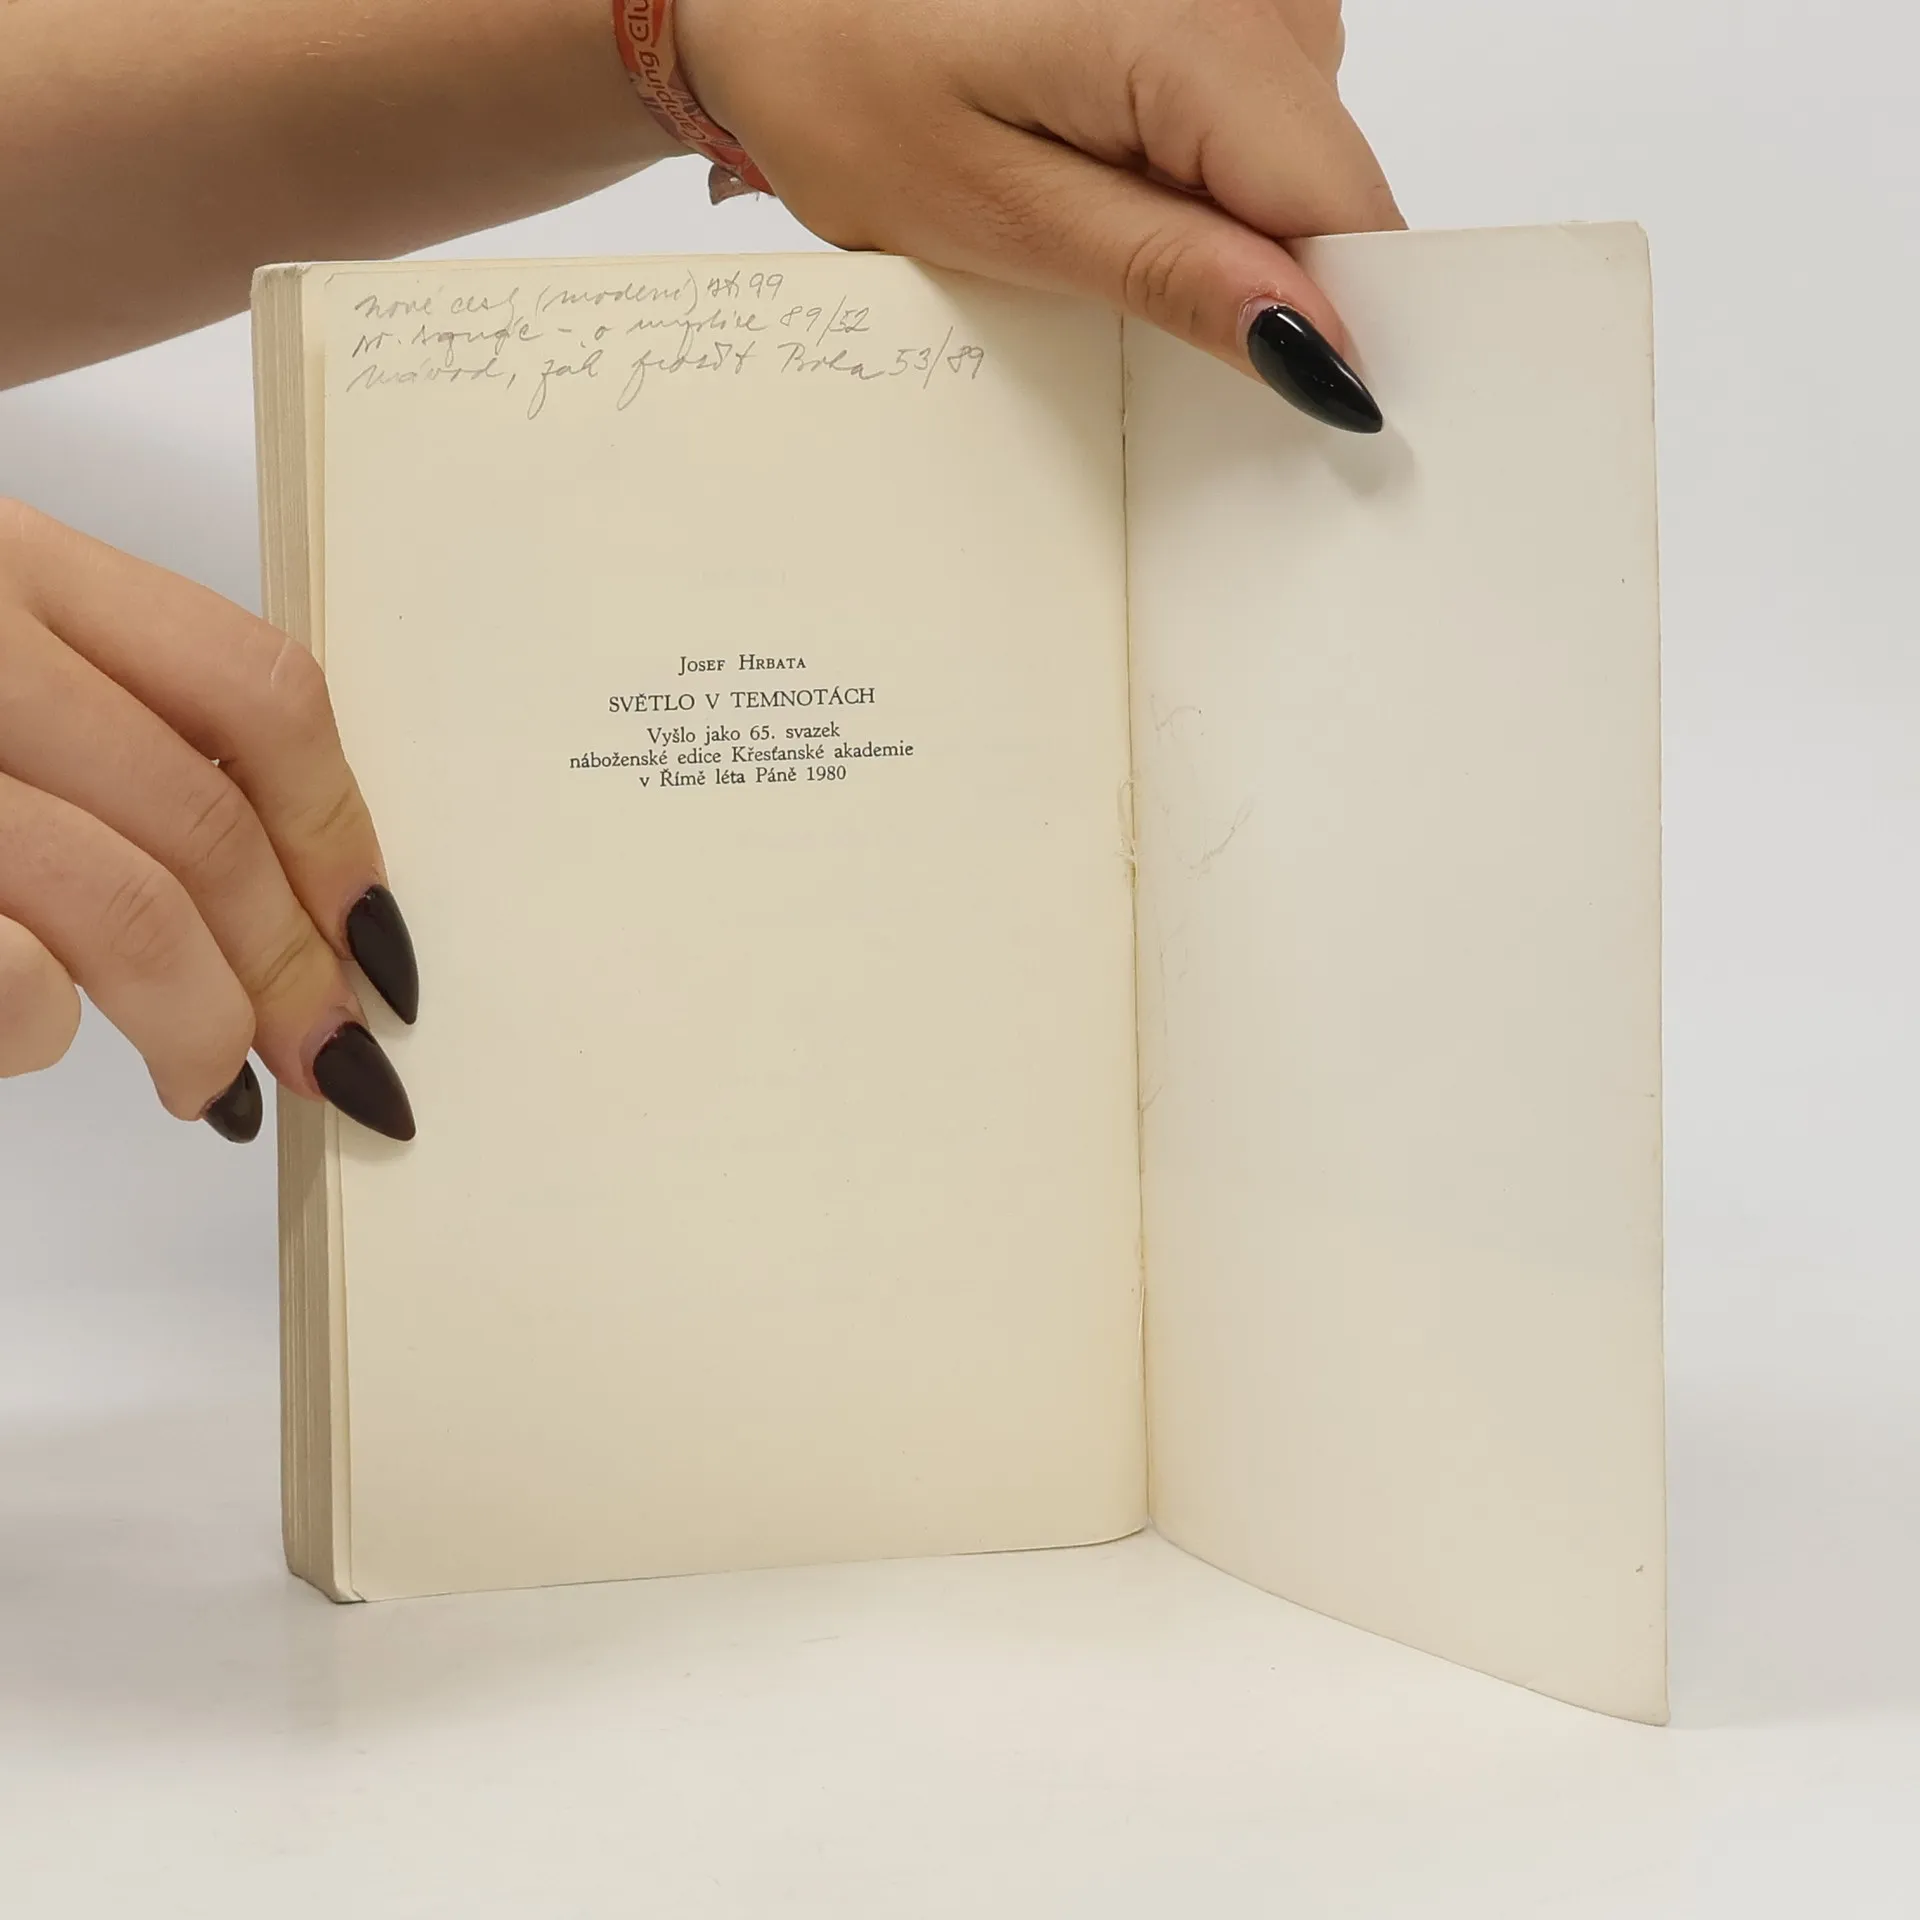 Camping Clu
nové cesty (moderní) str 99
o mystice 89/52
návod, jak prosit Boha 53/89
JOSEF HRBATA
SVĚTLO V TEMNOTÁCH
Vyšlo jako 65. svazek
náboženské edice Křesťanské akademie
v Římě léta Páně 1980